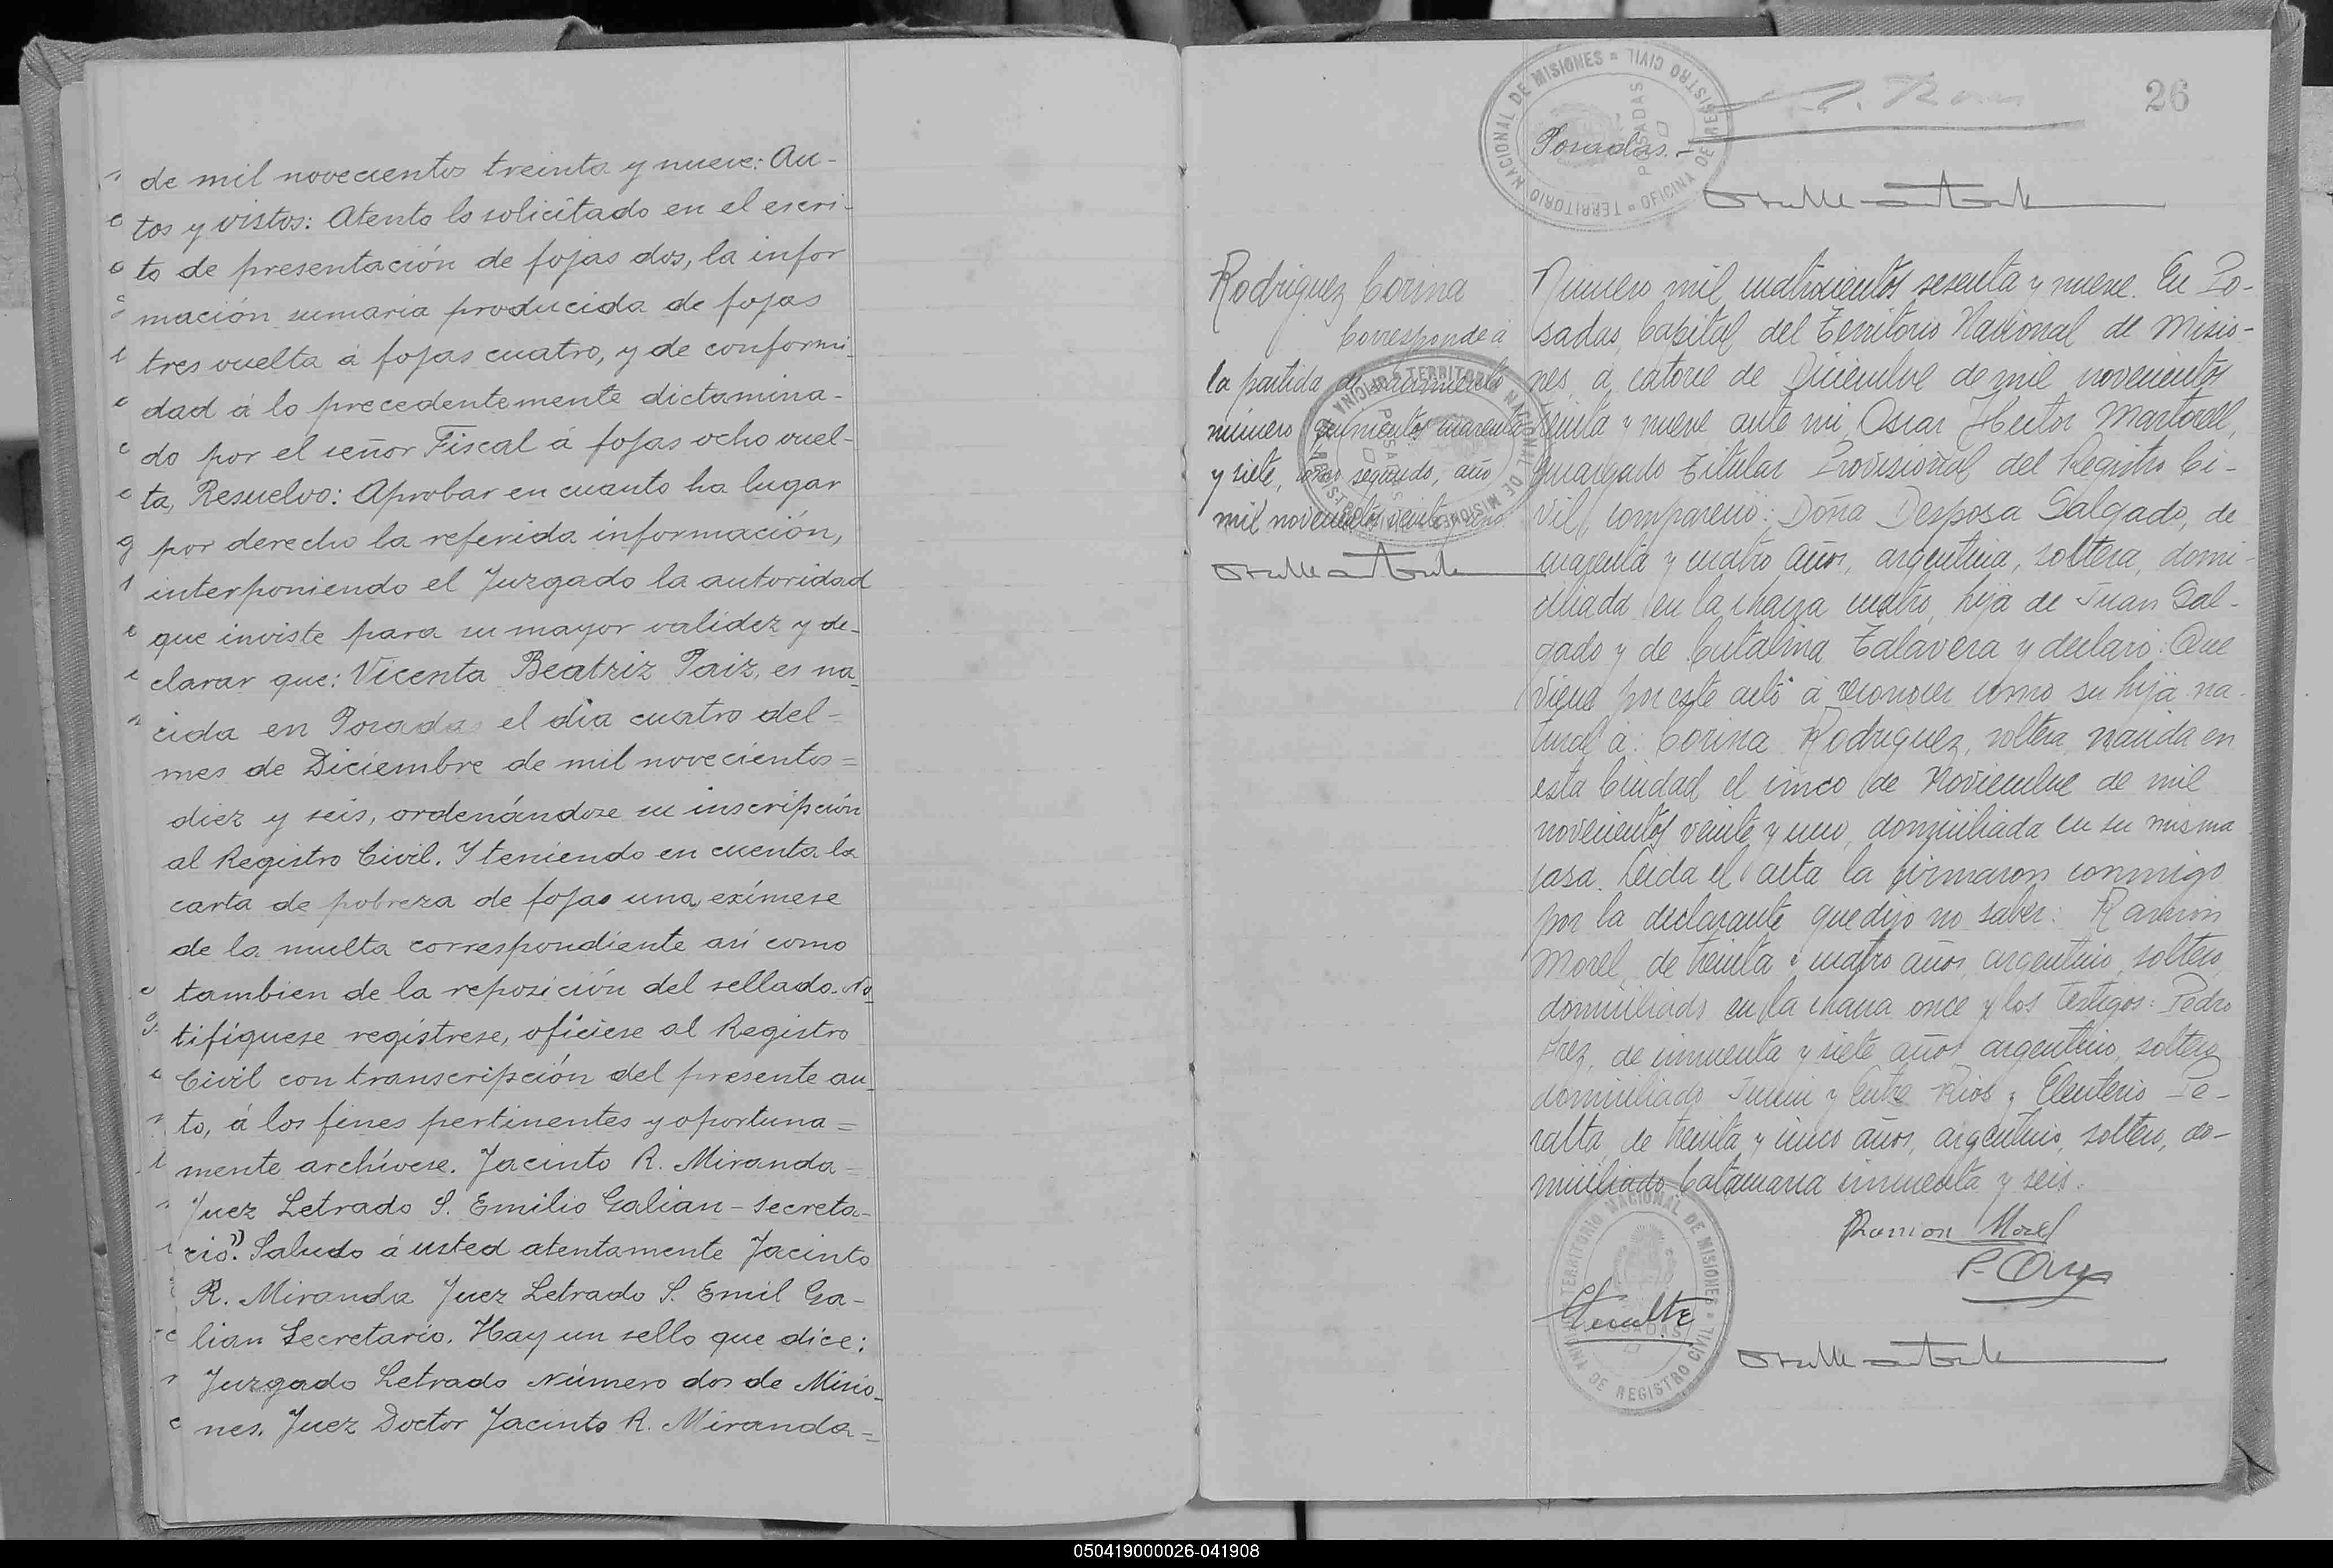 de mil novecientos treinta y nueve: Au-
tos y vistos: Atento lo solicitado en el escri-
to de presentación de fojas dos, la infor
mación sumaria producida de fojas
tres vuelta á fojas cuatro, y de conformi-
dad á lo precedentemente dictamina-
do por el señor Fiscal á fojas ocho vuel-
ta, Resuelvo: Aprobar en cuanto ha lugar
por derecho la referida información,
interponiendo el Juzgado la autoridad
que inviste para su mayor validez y de-
clarar que: Vicenta Beatriz Paiz, es na-
cida en Posadas el dia cuatro del=
mes de Diciembre de mil novecientos=
diez y seis, ordenándose su inscripción
al Registro Civil. Y teniendo en cuenta la
carta de pobreza de fojas una, exímese
de la multa correspondiente asi como
tambien de la reposición del sellado. No
tifíquese regístrese, ofíciese al Registro
Civil con transcripción del presente au-
to, á los fines pertinentes y oportuna=
mente archívese. Jacinto R. Miranda=
Juez Letrado S. Emilio Galian - secreta-
rio". Saludo á usted atentamente Jacinto
R. Miranda Juez Letrado S. Emil Ga-
lian Secretario. Hay un sello que dice:
Juzgado Letrado Número dos de Misio-
nes. Juez Doctor Jacinto R. Miranda=
26
TERRITORIO NACIONAL DE MISIONES = OFICINA DE REGISTRO CIVIL
POSADAS
Posadas.-
Rodriguez Corina
Corresponde á
la partida de nacimiento
número quinientos cuarenta
y siete, tomo segundo, año
mil novecientos veinte y uno
TERRITORIO NACIONAL DE MISIONES = OFICINA DE REGISTRO CIVIL
POSADAS
Número mil cuatrocientos sesenta y nueve. En Po-
sadas, Capital del Territorio Nacional de Misio-
nes, á catorce de Diciembre de mil novecientos
treinta y nueve ante mi, Oscar Hector Martorell,
Encargado Titular Provisional del Registro Ci-
vil, compareció: Doña Desposa Salgado, de
cuarenta y cuatro años, argentina, soltera, domi-
ciliada en la chacra cuatro, hija de Juan Sal-
gado y de Catalina Talavera y declaró: Que
viene por este acto á reconocer como su hija na-
tural á: Corina Rodriguez, soltera, nacida en
esta Ciudad el cinco de Noviembre de mil
novecientos veinte y uno, domiciliada en su misma
casa. Leida el acta la firmaron conmigo
por la declarante que dijo no saber: Ramón
Morel, de treinta y cuatro años, argentino, soltero,
domiciliado en la chacra once y los testigos: Pedro
de cincuenta y siete años, argentino, soltero,
domiciliado Junin y Entre Rios y Eleuterio Pe-
ralta, de treinta y cinco años, argentino, soltero, do-
miciliado Catamarca cincuenta y seis.
Ramon Morel
TERRITORIO NACIONAL DE MISIONES = OFICINA DE REGISTRO CIVIL
POSADAS
050419000026-041908